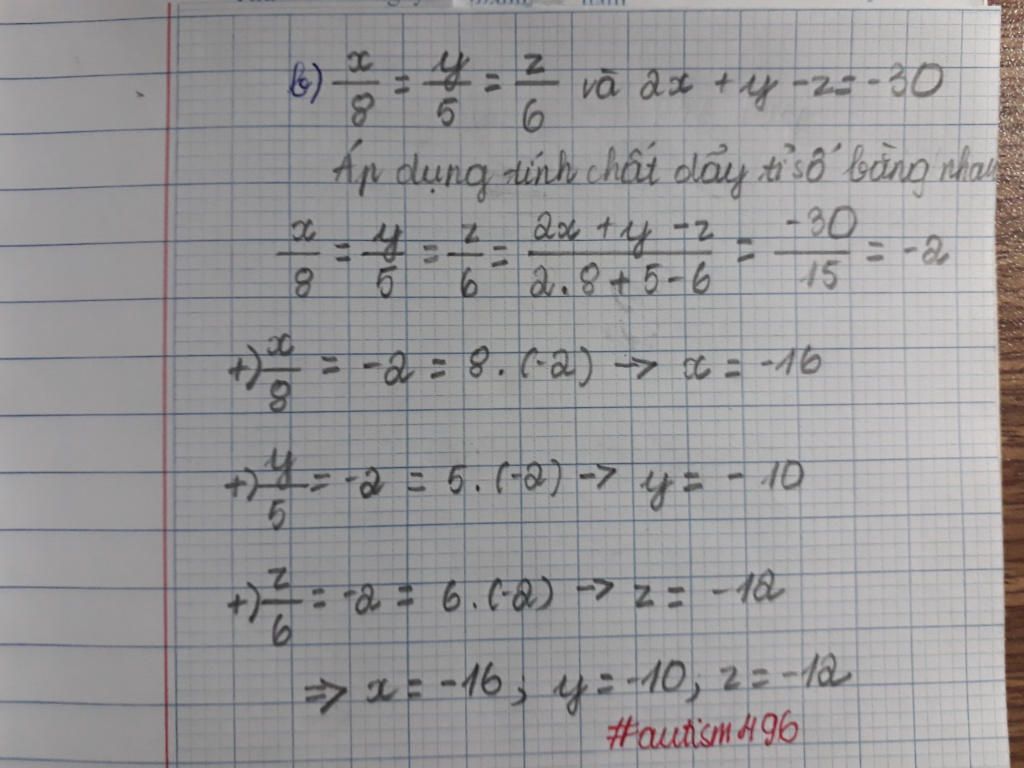 b) x/8 = y/5 = z/6 và 2x + y - z = -30
Áp dụng tính chất dảy tỉ số bằng nhau
x/8 = y/5 = z/6 = (2x + y - z)/(2.8 + 5 - 6) = -30/15 = -2
+) x/8 = -2 = 8.(-2) → x = -16
+) y/5 = -2 = 5.(-2) → y = -10
+) z/6 = -2 = 6.(-2) → z = -12
⇒ x = -16; y = -10; z = -12
#autism496